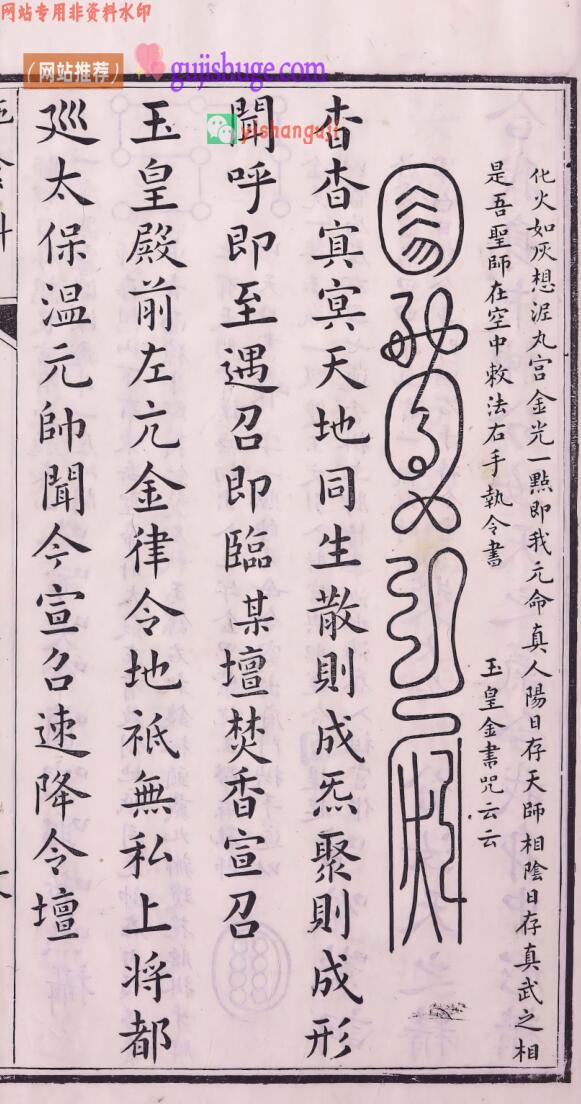 网站专用非资料水印
(网站推荐)
gujishuge.com
yishanguji
化火如灰想泥丸宫金光一點即我元命真人陽日存天師相陰日存真武之相
是吾聖師在空中敕法右手執令書 玉皇金書咒云云
杳杳寘冥天地同生散則成炁聚則成形
聞呼即至遇召即臨某壇焚香宣召
玉皇殿前左亢金律令地祇無私上将都
廵太保温元帥聞今宣召速降令壇